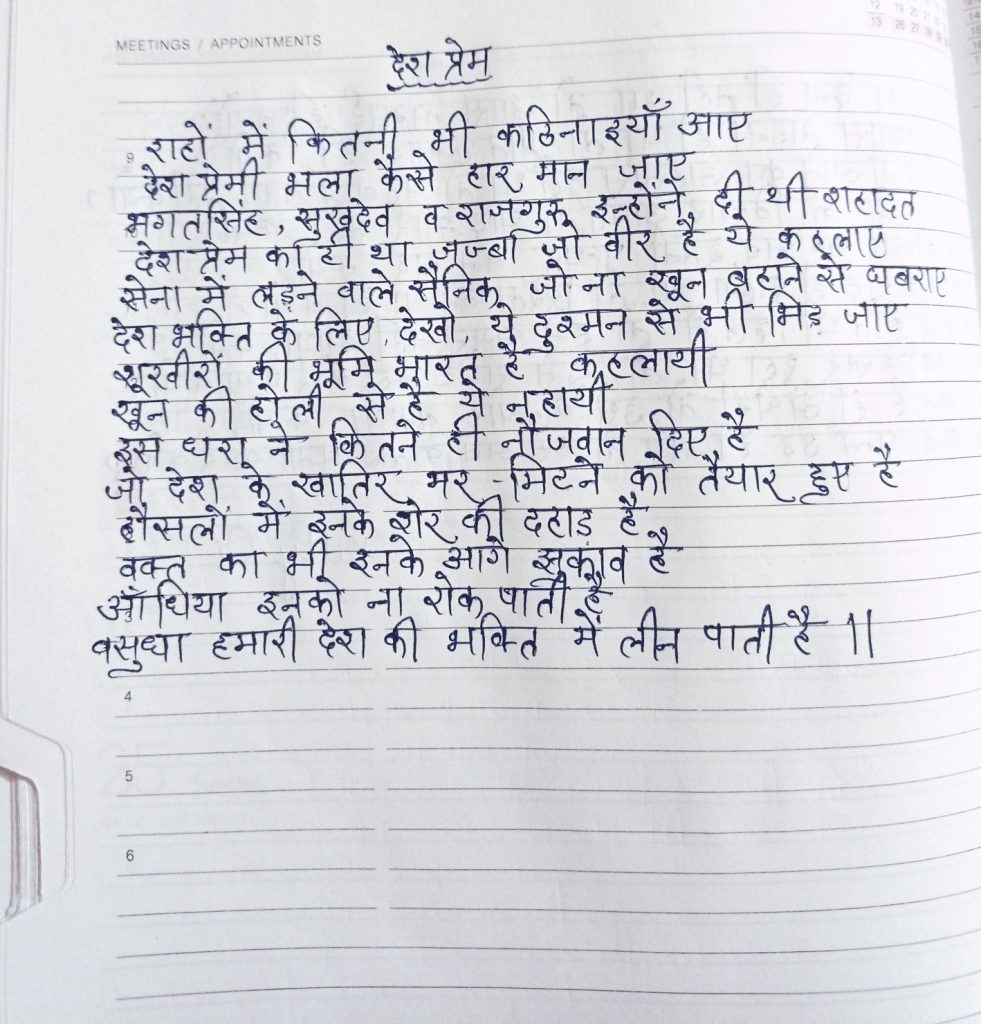 MEETINGS / APPOINTMENTS
12 19 20
13 26 27 28
देश प्रेम
9
राहों में कितनी भी कठिनाइयाँ आए
देश प्रेमी भला कैसे हार मान जाए
भगतसिंह, सुखदेव व राजगुरू इन्होंने दी थी शहादत
देश प्रेम का ही था जज्बा जो वीर है ये कहलाए
सेना में लड़ने वाले सैनिक जो ना खून बहाने से घबराए
देश भक्ति के लिए देखो ये दुश्मन से भी भिड़ जाए
शूरवीरों की भूमि भारत है कहलायी
खून की होली से है ये नहायी
इस धरा ने कितने ही नौजवान दिए है
जो देश के खातिर मर-मिटने को तैयार हुए है
हौसलों में इनके शेर की दहाड़ है
वक्त का भी इनके आगे झुकाव है
आँधिया इनको ना रोक पाती है
वसुधा हमारी देश की भक्ति में लीन पाती है ।।
4
5
6